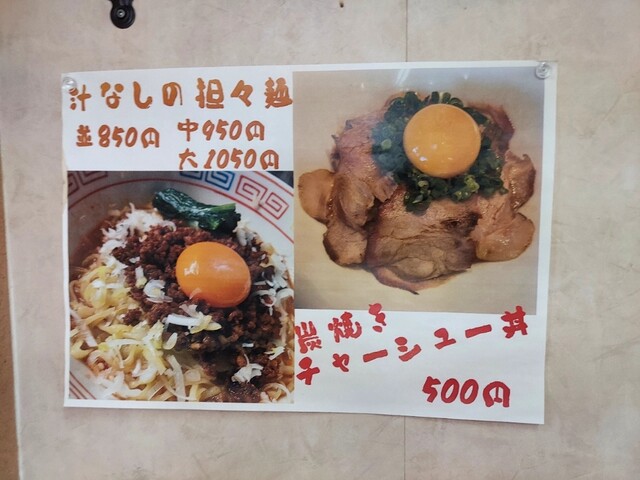 汁なしの担々麺
並850円
中950円
大1050円
炭焼き
チャーシュー丼
500円